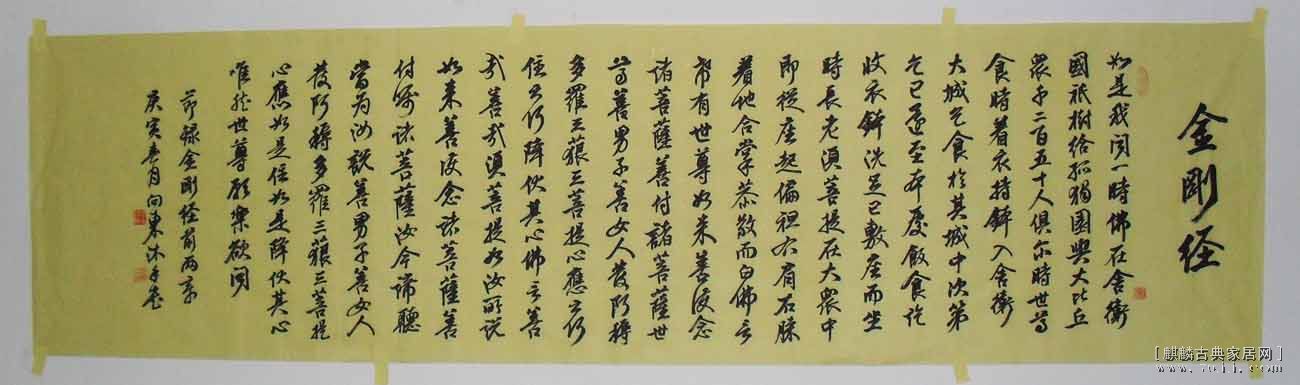 金剛经
如是我闻一時佛在舍衛
國祇樹给孤獨園與大比丘
眾千二百五十人俱尔時世尊
食時着衣持鉢入舍衛
大城乞食於其城中次第
乞已還至本處飯食訖
收衣鉢洗足已敷座而坐
時長老湏菩提在大眾中
即從座起偏袒右肩右膝
着地合掌恭敬而白佛言
希有世尊如来善護念
諸菩薩善付諸菩薩世
尊善男子善女人發阿耨
多羅三藐三菩提心應云何
住云何降伏其心佛言善
哉善哉湏菩提如汝所说
如来善護念諸菩薩善
付嘱諸菩薩汝今諦聽
當为汝説善男子善女人
發阿耨多羅三藐三菩提
心應如是住如是降伏其心
唯然世尊願樂欲闻
節録金剛经前两章
庚寅春月向東沐手書
[麒麟古典家居网]